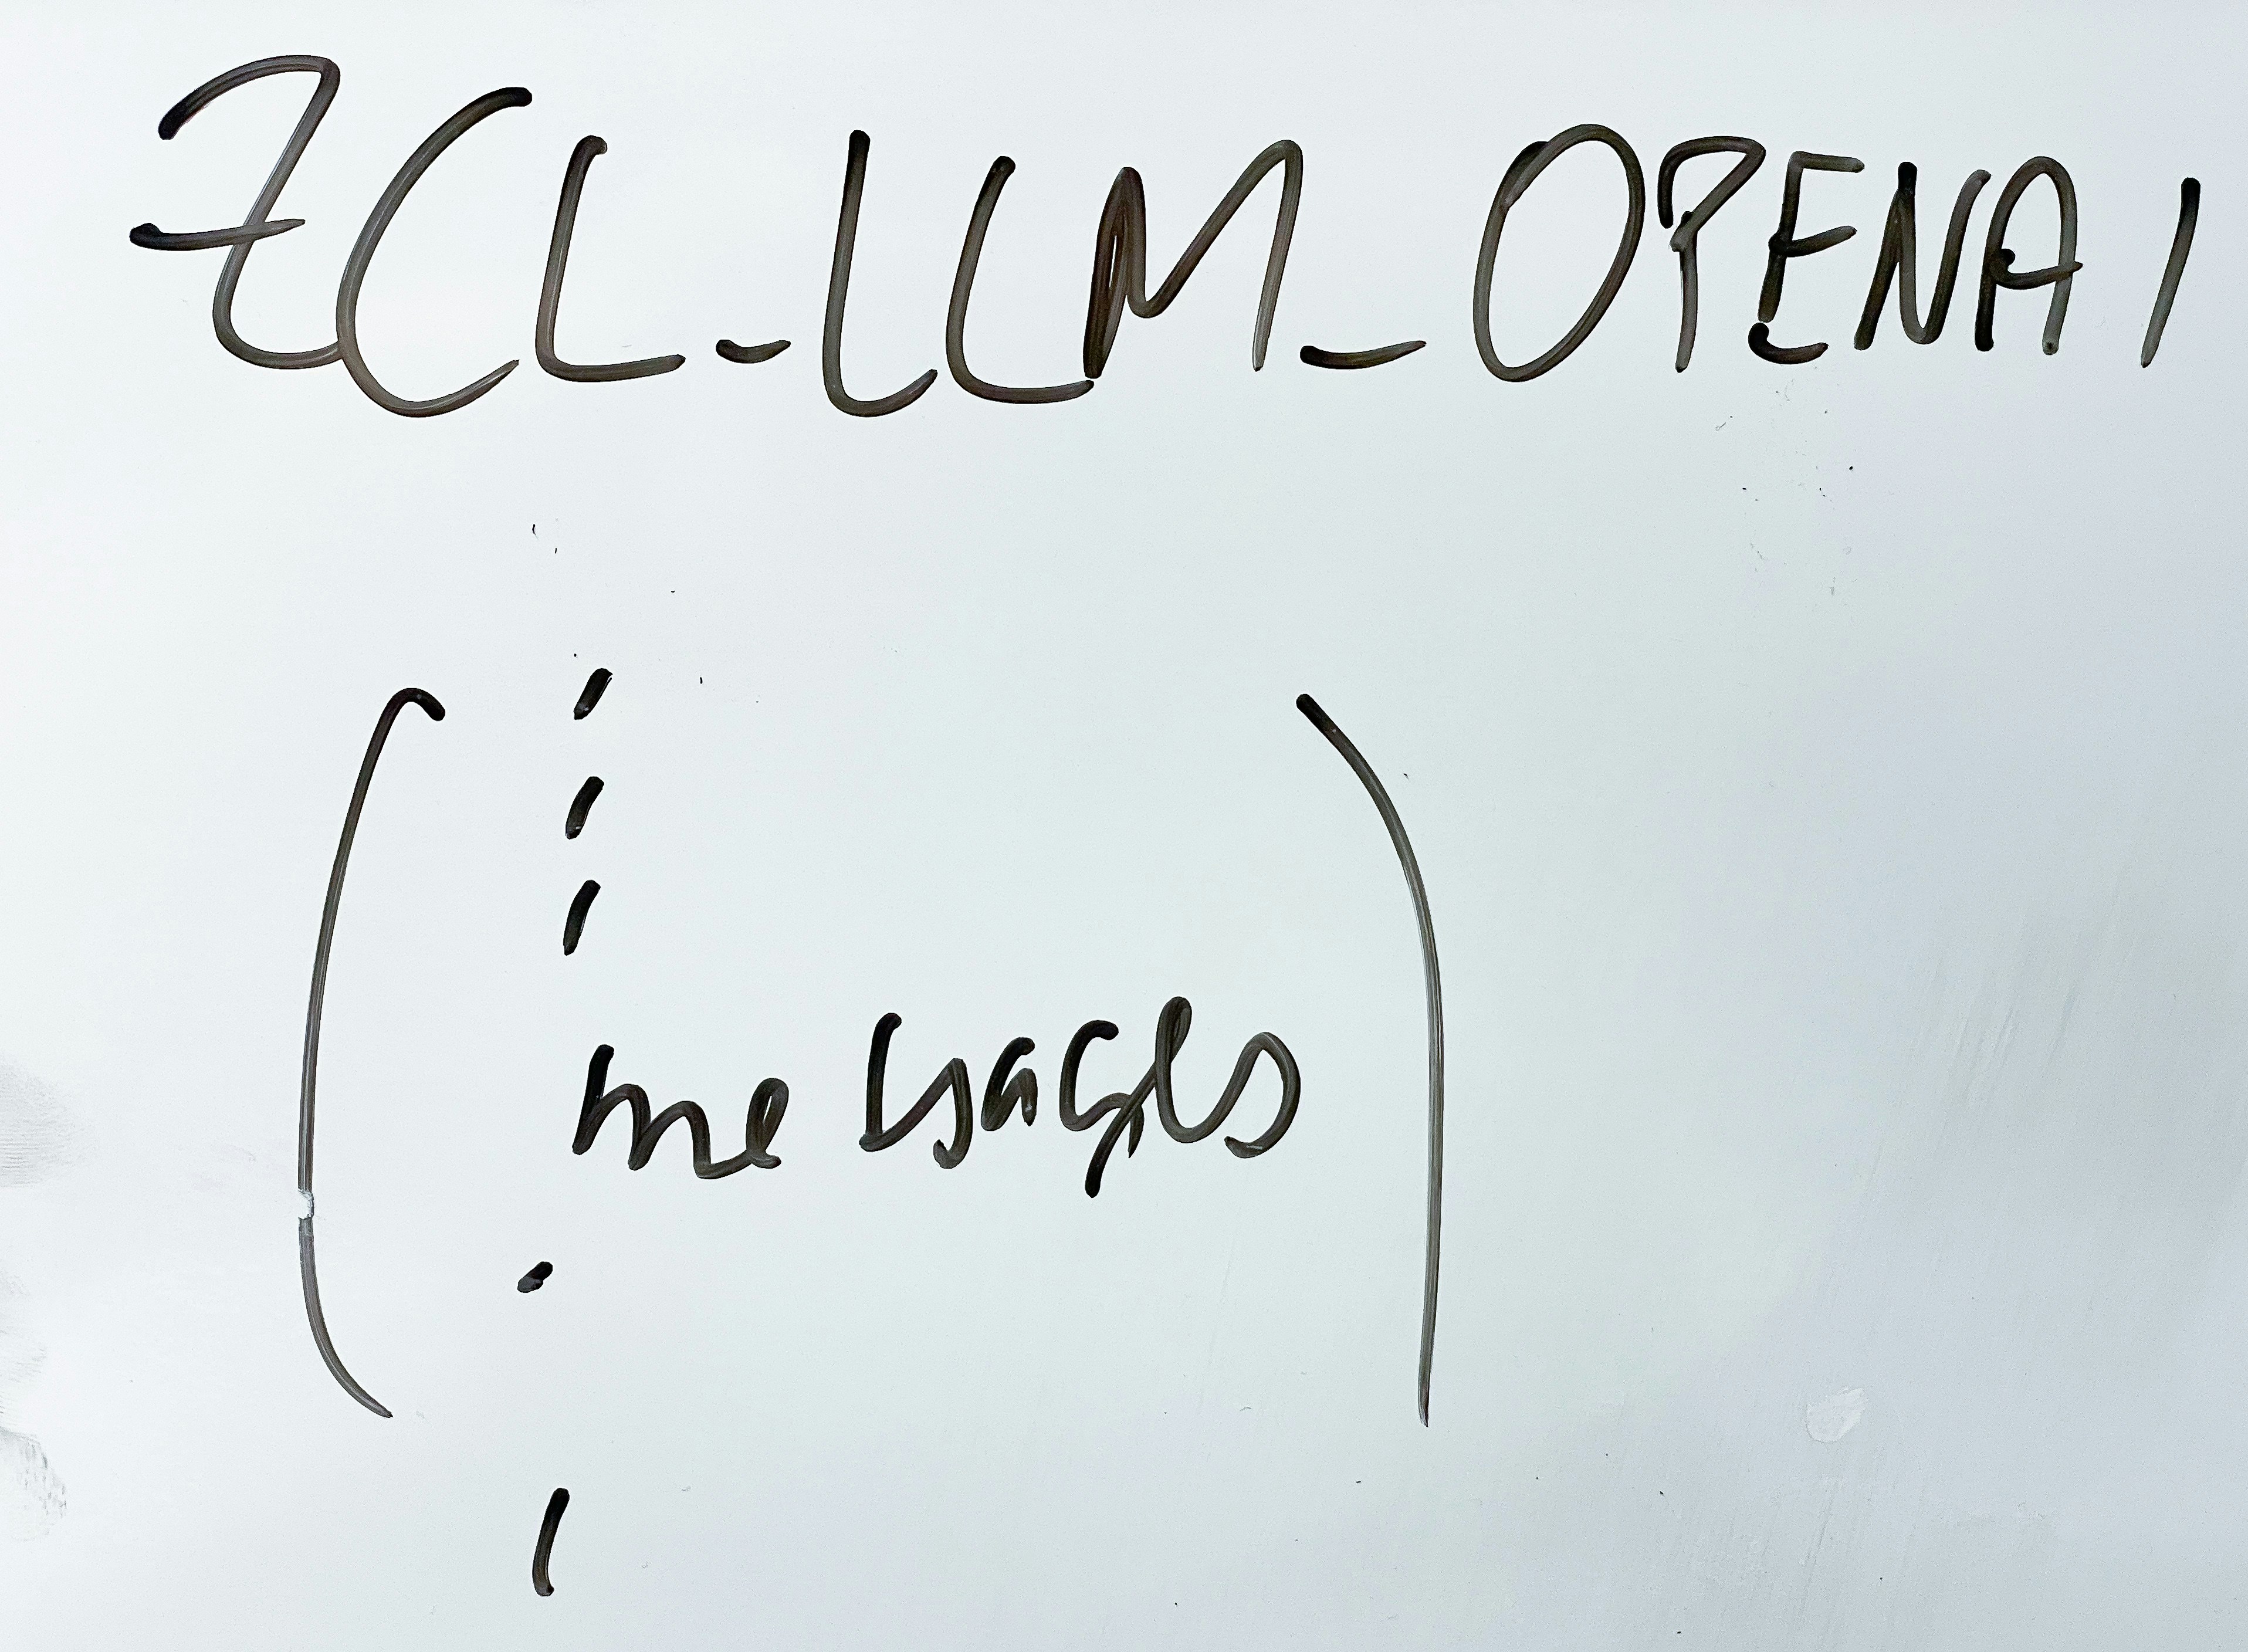 ZCL_LLM_OPENAI
(
messages
)